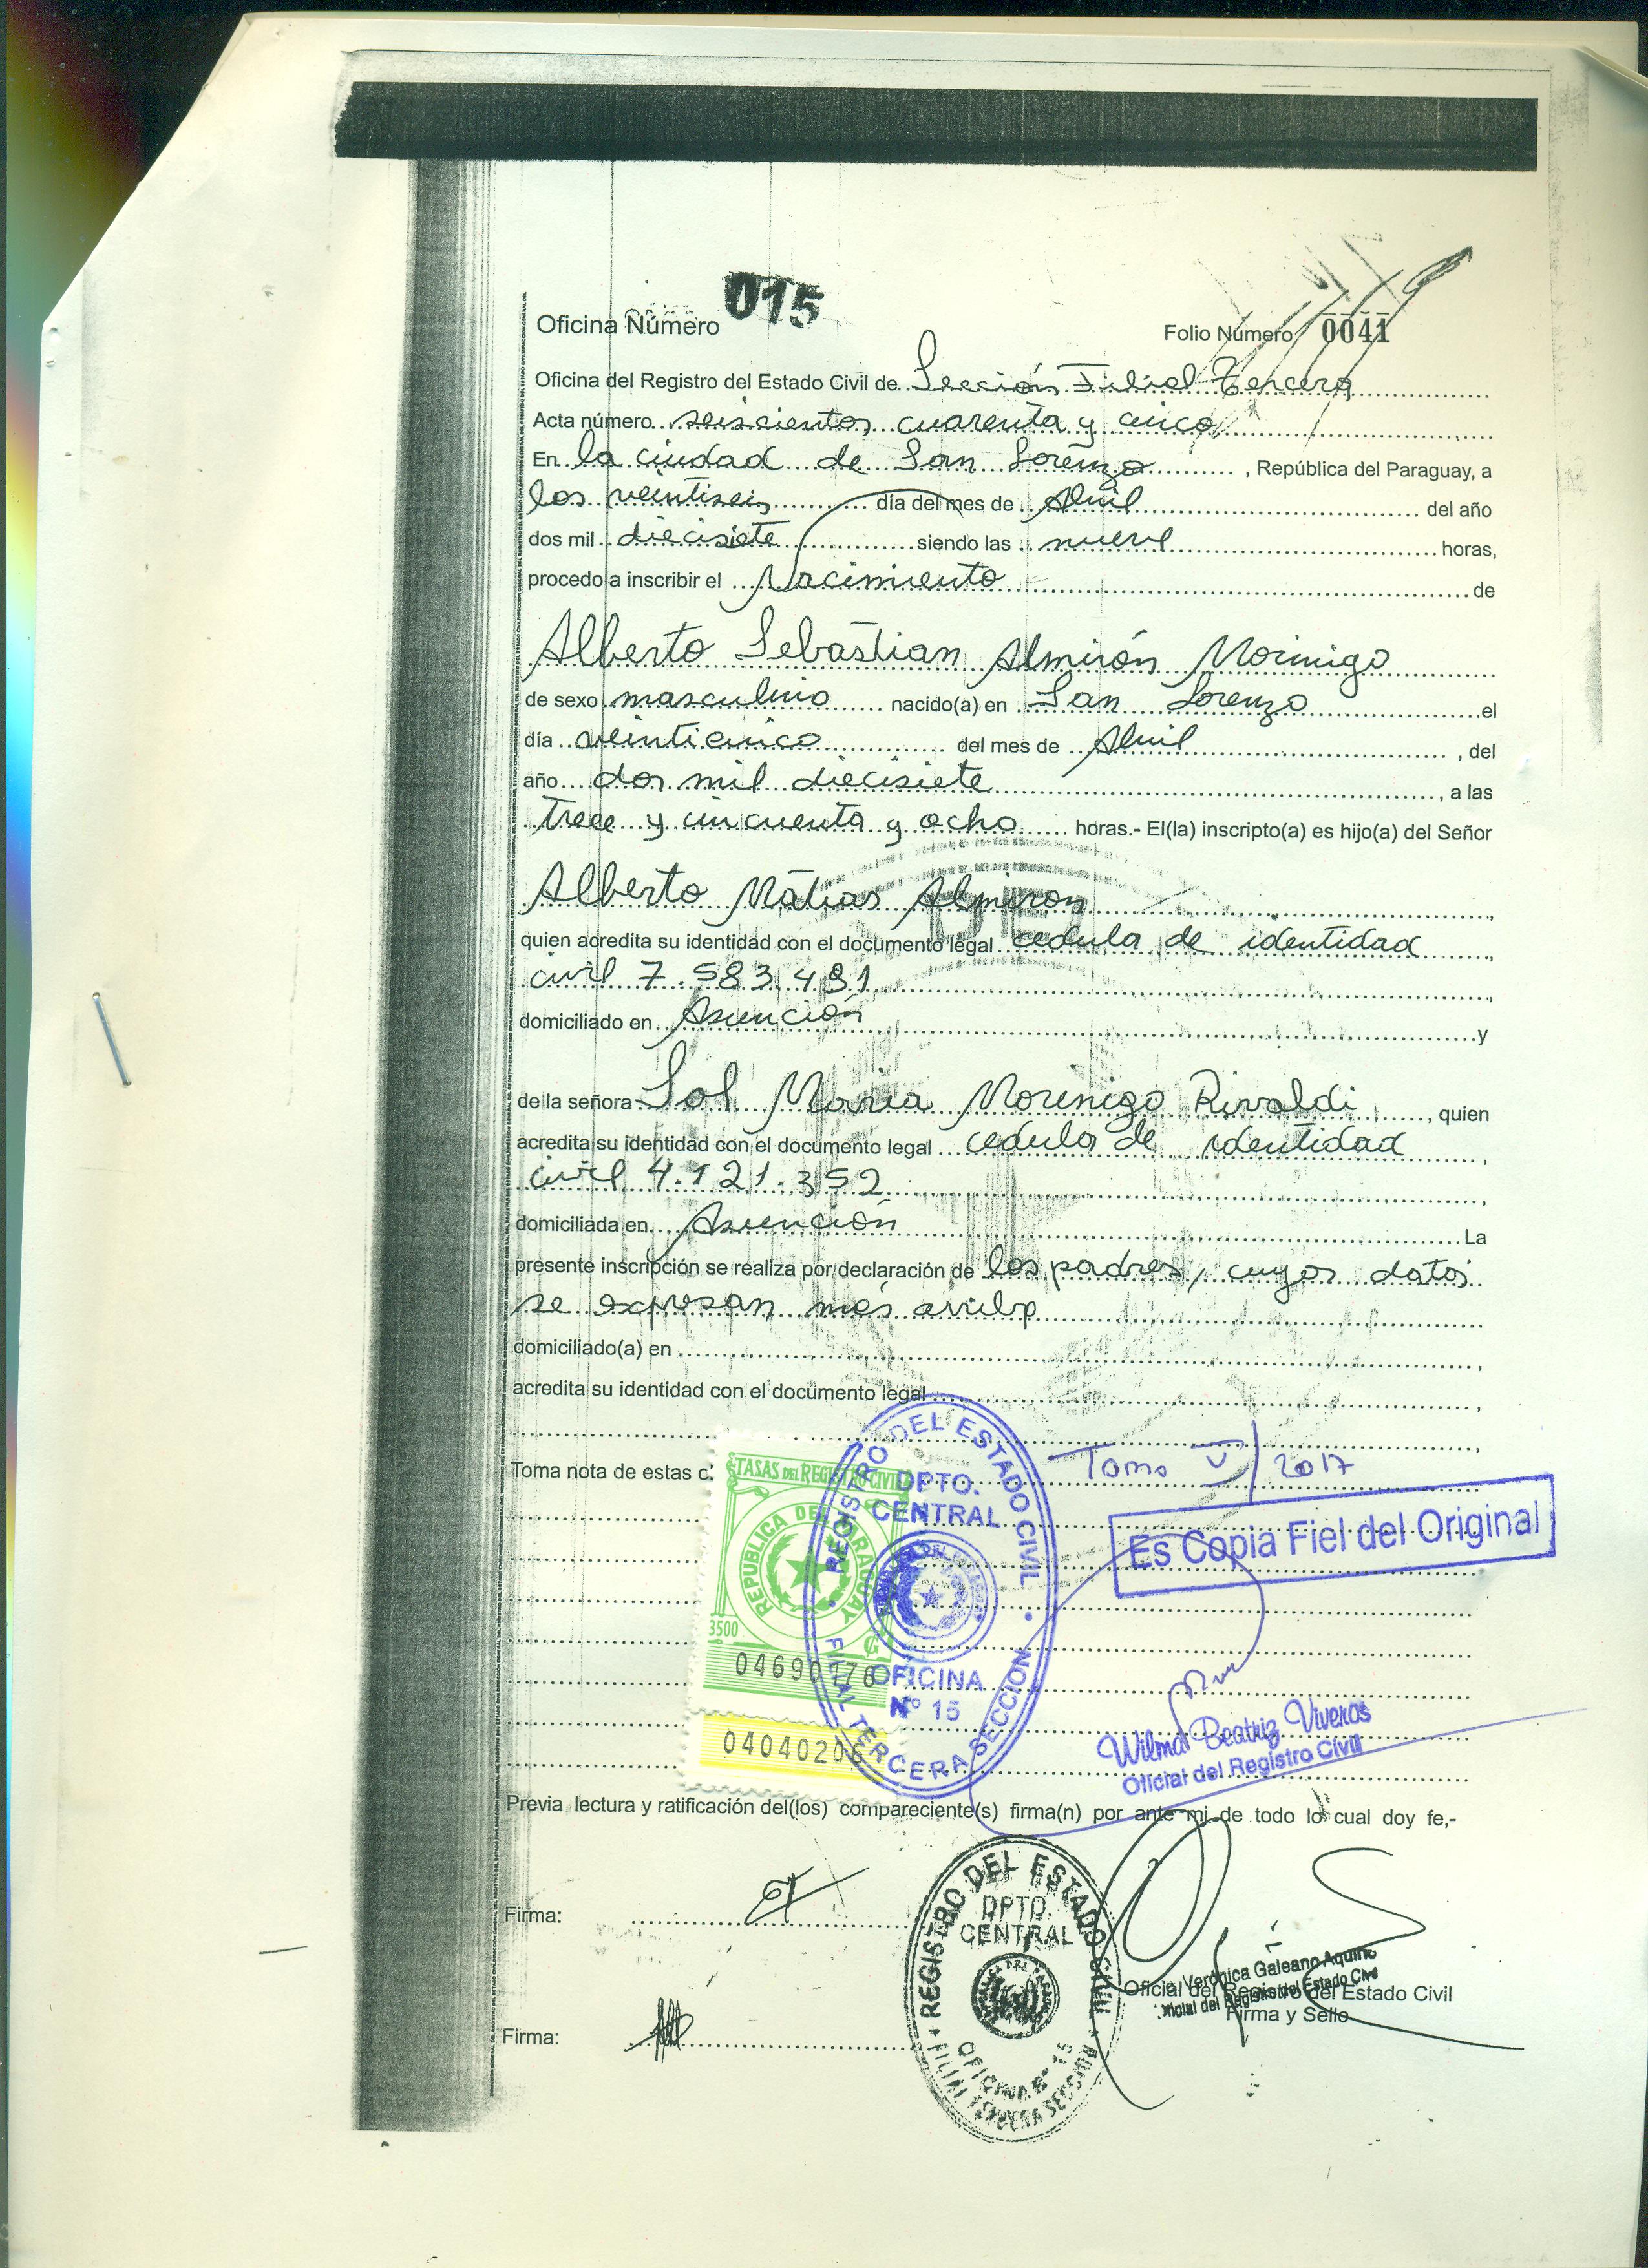 Oficina Número 015
Folio Número 0041
Oficina del Registro del Estado Civil de Sección Filial Tercera
Acta número seiscientos cuarenta y cinco
En la ciudad de San Lorenzo, República del Paraguay, a
los veintiseis día del mes de Abril del año
dos mil diecisiete siendo las nueve horas,
procedo a inscribir el Nacimiento de
Alberto Sebastian Almirón Morinigo
de sexo masculino nacido(a) en San Lorenzo el
día veinticinco del mes de Abril, del
año dos mil diecisiete, a las
trece y cincuenta y ocho horas.- El(la) inscripto(a) es hijo(a) del Señor
Alberto Matias Almiron,
quien acredita su identidad con el documento legal cedula de identidad,
civil 7.583.491,
domiciliado en Asunción y
de la señora Sol Maria Morinigo Rivaldi, quien
acredita su identidad con el documento legal cedula de identidad,
civil 4.121.352,
domiciliada en Asunción La
presente inscripción se realiza por declaración de los padres, cuyos datos
se expresan más arriba,
domiciliado(a) en ,
acredita su identidad con el documento legal ,
Toma nota de estas
Tomo V/2017
TASAS DEL REGISTRO CIVIL
REPUBLICA DEL PARAGUAY
3500 G
04690178
04040206
REGISTRO DEL ESTADO CIVIL
DPTO.
CENTRAL
OFICINA
Nº 15
FILIAL TERCERA SECCION
Es Copia Fiel del Original
Wilma Beatriz Viveros
Oficial del Registro Civil
Previa lectura y ratificación del(los) compareciente(s) firma(n) por ante mi de todo lo cual doy fe,-
Firma:
REGISTRO DEL ESTADO CIVIL
DPTO.
CENTRAL
OFICINA Nº 15
FILIAL TERCERA SECCION
Verónica Galeano Aquino
Oficial del Registro del Estado Civil
Oficial del Registro del Estado Civil
Firma y Sello
Firma: